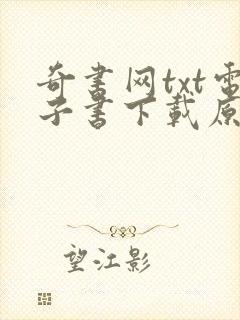 奇书网txt電
子書下載原
望江影